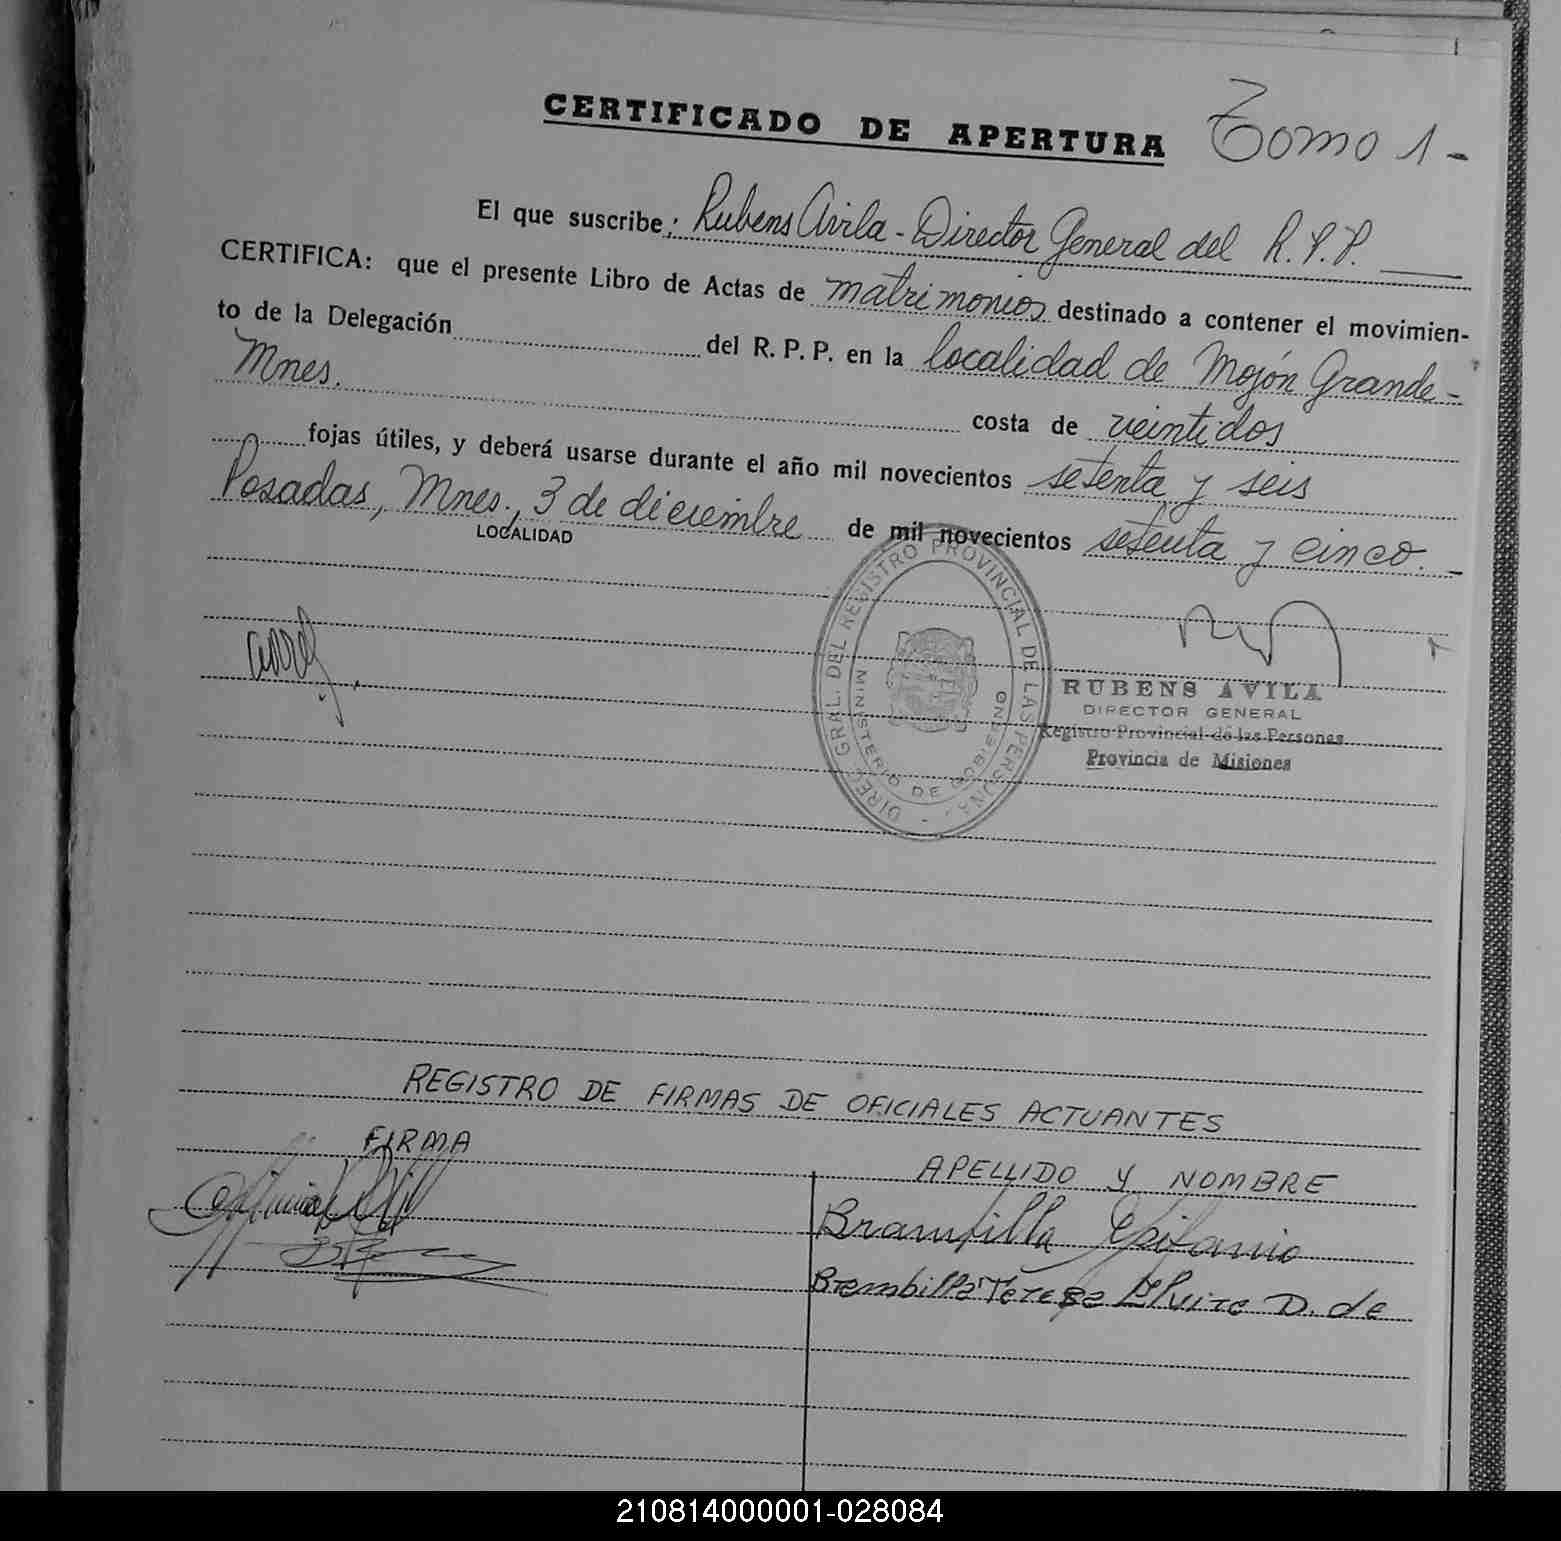 CERTIFICADO DE APERTURA Tomo 1 -
El que suscribe; Rubens Avila - Director General del R.P.P.
CERTIFICA: que el presente Libro de Actas de matrimonios destinado a contener el movimien-
to de la Delegación del R. P. P. en la localidad de Mojón Grande -
Mnes. costa de veintidos
fojas útiles, y deberá usarse durante el año mil novecientos setenta y seis
Posadas, Mnes., 3 de diciembre de mil novecientos setenta y cinco. -
LOCALIDAD
DIREC. GRAL. DEL REGISTRO PROVINCIAL DE LAS PERSONAS
MINISTERIO DE GOBIERNO
RUBENS AVILA
DIRECTOR GENERAL
Registro Provincial de las Persones
Provincia de Misiones
REGISTRO DE FIRMAS DE OFICIALES ACTUANTES
FIRMA APELLIDO Y NOMBRE
Brambilla Epifanio
Brembilla Teresa Elvira D. de
210814000001-028084